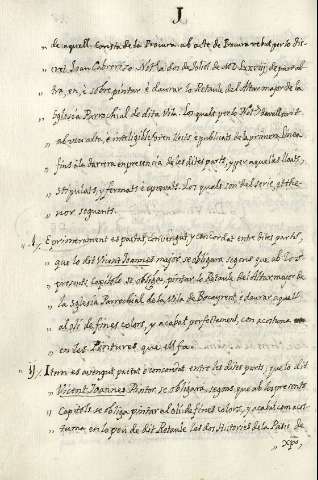 J
" de aquell. Consta de la Procura ab acte de Procura rebut per lo dis-
" cret Joan Cabrerizo Notᵃ a dos de Juliol de MDLxxviij de pura al
" bra, en, è sobre pintar è daurar lo Retaule del Altar major de la
" Iglesia Parrochial de dita Vila. Los quals per lo Notᵃ davall scrit
" ab veu alta, è inteligible foren lests è publicats de la primera linea
" fins à la darrera en presencia de les dites parts, y per aquelles lloats,
" stipulats, y fermats è aprovats. Los quals son del serie, et the-
" nor seguents.
" 1/, E primerament es pactat convengut y concordat entre dites parts,
" que lo dit Vicent Joannes major se obligara segons que ab los
" presents Capitols se obliga, pintar lo Retaule del Altar major de
" la Iglesia Parrochial de la Vila de Bocayrent, è daurar aquell
" al oli de fines colors, y acabat perfectament, com acostuma
" en les Pintures que ell fa.
" ij/, Item es avengut pactat è concordat entre les dites parts, que lo dit
" Vicent Joannes Pintor se obligara, segons que ab los presents
" Capitols se obliga pintar al oli de fines colors, y acabat com acos-
" tuma, en lo peu de dit Retaule les dos Histories de la Pasio de
" Xpo,